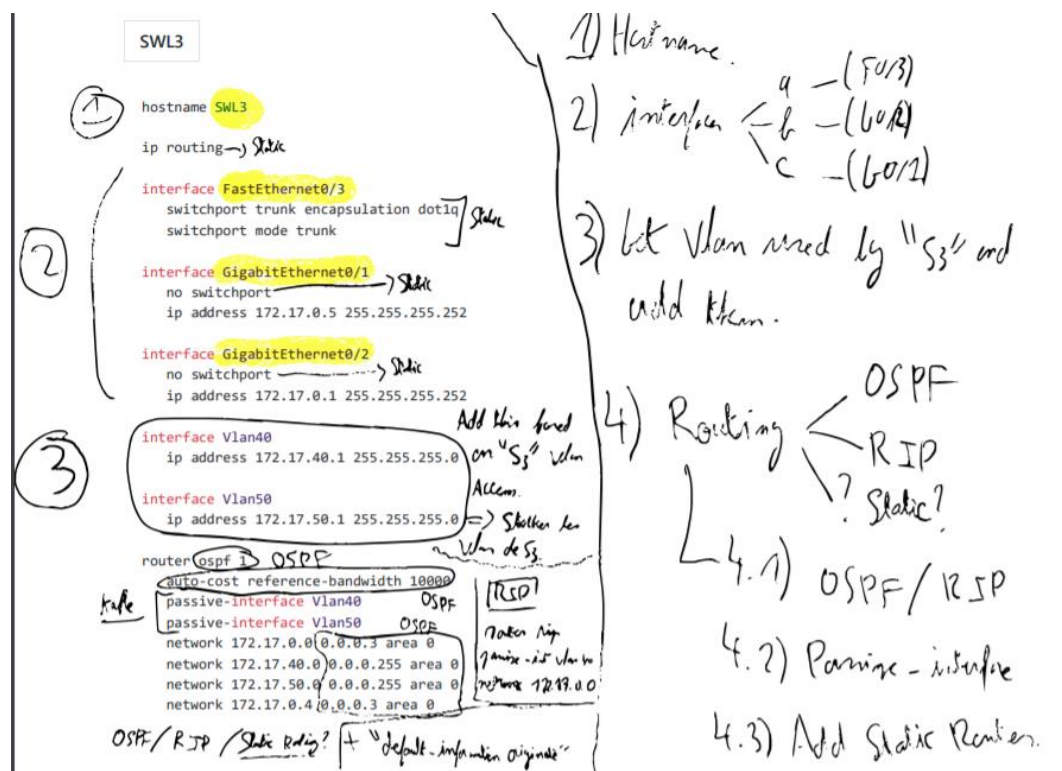 SWL3
1
hostname SWL3
ip routing → Static
interface FastEthernet0/3
switchport trunk encapsulation dot1q
switchport mode trunk
Static
2
interface GigabitEthernet0/1
no switchport → Static
ip address 172.17.0.5 255.255.255.252
interface GigabitEthernet0/2
no switchport → Static
ip address 172.17.0.1 255.255.255.252
3
interface Vlan40
ip address 172.17.40.1 255.255.255.0
interface Vlan50
ip address 172.17.50.1 255.255.255.0
Add this based
on "S3" vlan
Access.
=> Stocker les
Vlan de S3.
router ospf 1 OSPF
auto-cost reference-bandwidth 10000
passive-interface Vlan40 OSPF
passive-interface Vlan50 OSPF
network 172.17.0.0 0.0.0.3 area 0
network 172.17.40.0 0.0.0.255 area 0
network 172.17.50.0 0.0.0.255 area 0
network 172.17.0.4 0.0.0.3 area 0
RIP
router rip
network
OSPF / RIP / Static Routing? + "default-information originate"
1) Hostname.
2) interfaces
a - (F0/3)
b - (G0/2)
c - (G0/1)
3) Get Vlan used by "S3" and
add them.
4) Routing
OSPF
RIP
? Static?
4.1) OSPF / RIP
4.2) Passive-interface
4.3) Add Static Routes.